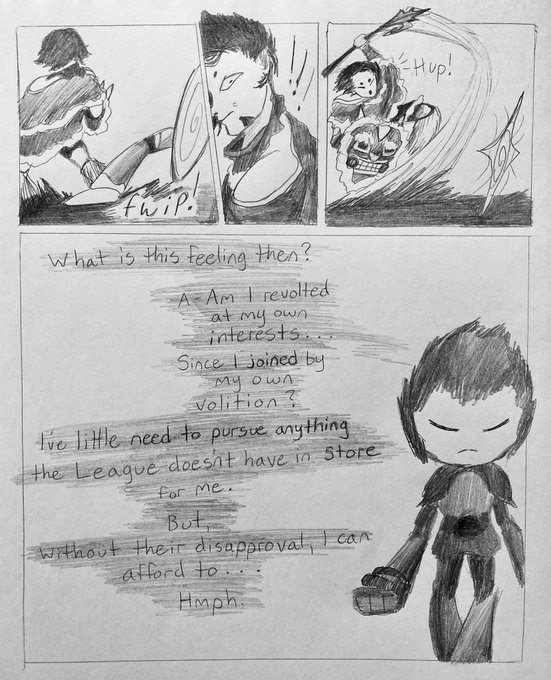 fwip!
!!
Hup!
What is this feeling then?
A-Am I revolted
at my own
interests...
Since I joined by
my own
volition?
I've little need to pursue anything
the League does'nt have in store
for me.
But,
without their disapproval, I can
afford to....
Hmph.